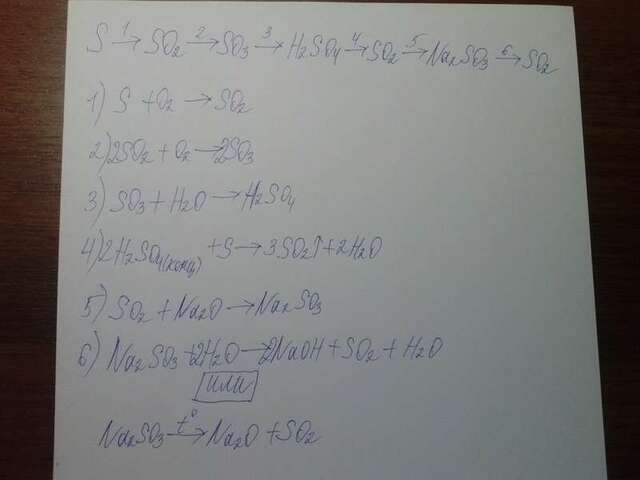 S 1→ SO2 2→ SO3 3→ H2SO4 4→ SO2 5→ Na2SO3 6→ SO2
1) S + O2 → SO2
2) 2SO2 + O2 → 2SO3
3) SO3 + H2O → H2SO4
4) 2H2SO4(конц) + S → 3SO2↑ + 2H2O
5) SO2 + Na2O → Na2SO3
6) Na2SO3 + 2H2O → 2NaOH + SO2 + H2O
или
Na2SO3 t°→ Na2O + SO2